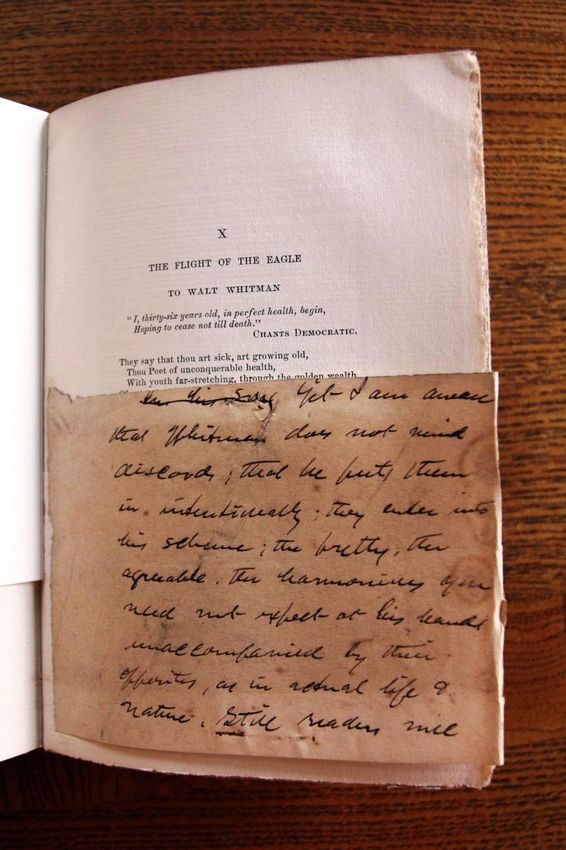 X
THE FLIGHT OF THE EAGLE
TO WALT WHITMAN
"I, thirty-six years old, in perfect health, begin,
Hoping to cease not till death."
CHANTS DEMOCRATIC.
They say that thou art sick, art growing old,
Thou Poet of unconquerable health,
With youth far-stretching, through the golden wealth
Yet I am aware
that Whitman does not mind
discords; that he puts them
in intentionally; they enter into
his scheme; the pretty, the
agreeable, the harmonious you
need not expect at his hands
unaccompanied by their
opposites, as in actual life &
nature. Still readers will